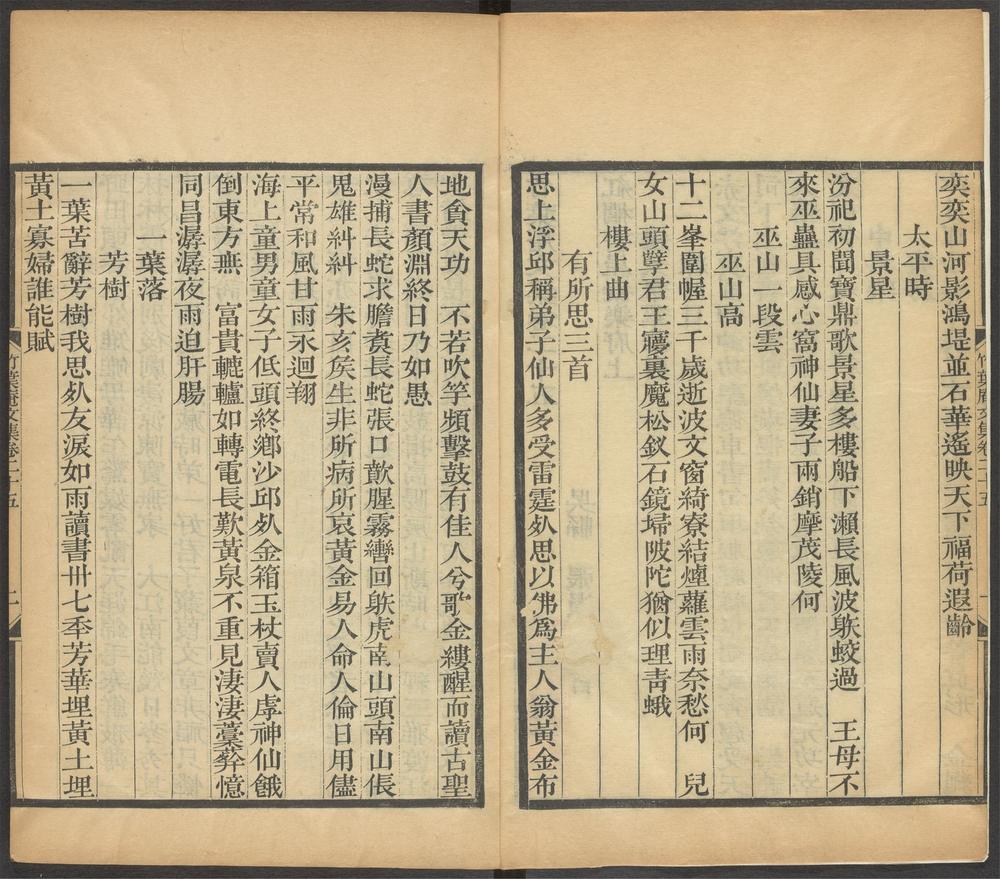 奕奕山河影鴻堤並石華遙映天下福荷遐齡
太平時
景星
汾祀初聞寶鼎歌景星多樓船下瀨長風波䠶蛟過　王母不
來巫蠱具感心窩神仙妻子兩銷摩茂陵何
巫山一段雲
巫山高
十二峯圍幄三千歲逝波文窗綺寮結煙蘿雲雨奈愁何　兒
女山頭孽君王㝱裏魔松釵石鏡埽陂陀猶似理靑蛾
樓上曲
有所思三首
思上浮邱稱弟子仙人多受雷霆㱙思以佛爲主人翁黃金布
地貪天功　不若吹竽頻擊鼓有佳人兮歌金縷醒而讀古聖
人書顏淵終日乃如愚
漫捕長蛇求膽煑長蛇張口歕腥霧轡回䠶虎南山頭南山倀
鬼雄糾糾　朱亥矦生非所病所哀黃金易人命人倫日用儘
平常和風甘雨永迴翔
海上童男童女子低頭終鄉沙邱㱙金箱玉杖賣人虖神仙餓
倒東方無　富貴轆轤如轉電長歎黃泉不重見淒淒薧䒹憶
同昌潺潺夜雨迫肝腸
一葉落
芳樹
一葉苦辭芳樹我思㱙友淚如雨讀書卌七秊芳華埋黃土埋
黃土寡婦誰能賦
竹葉庵文集卷二十五
二
竹葉庵文集卷二十五